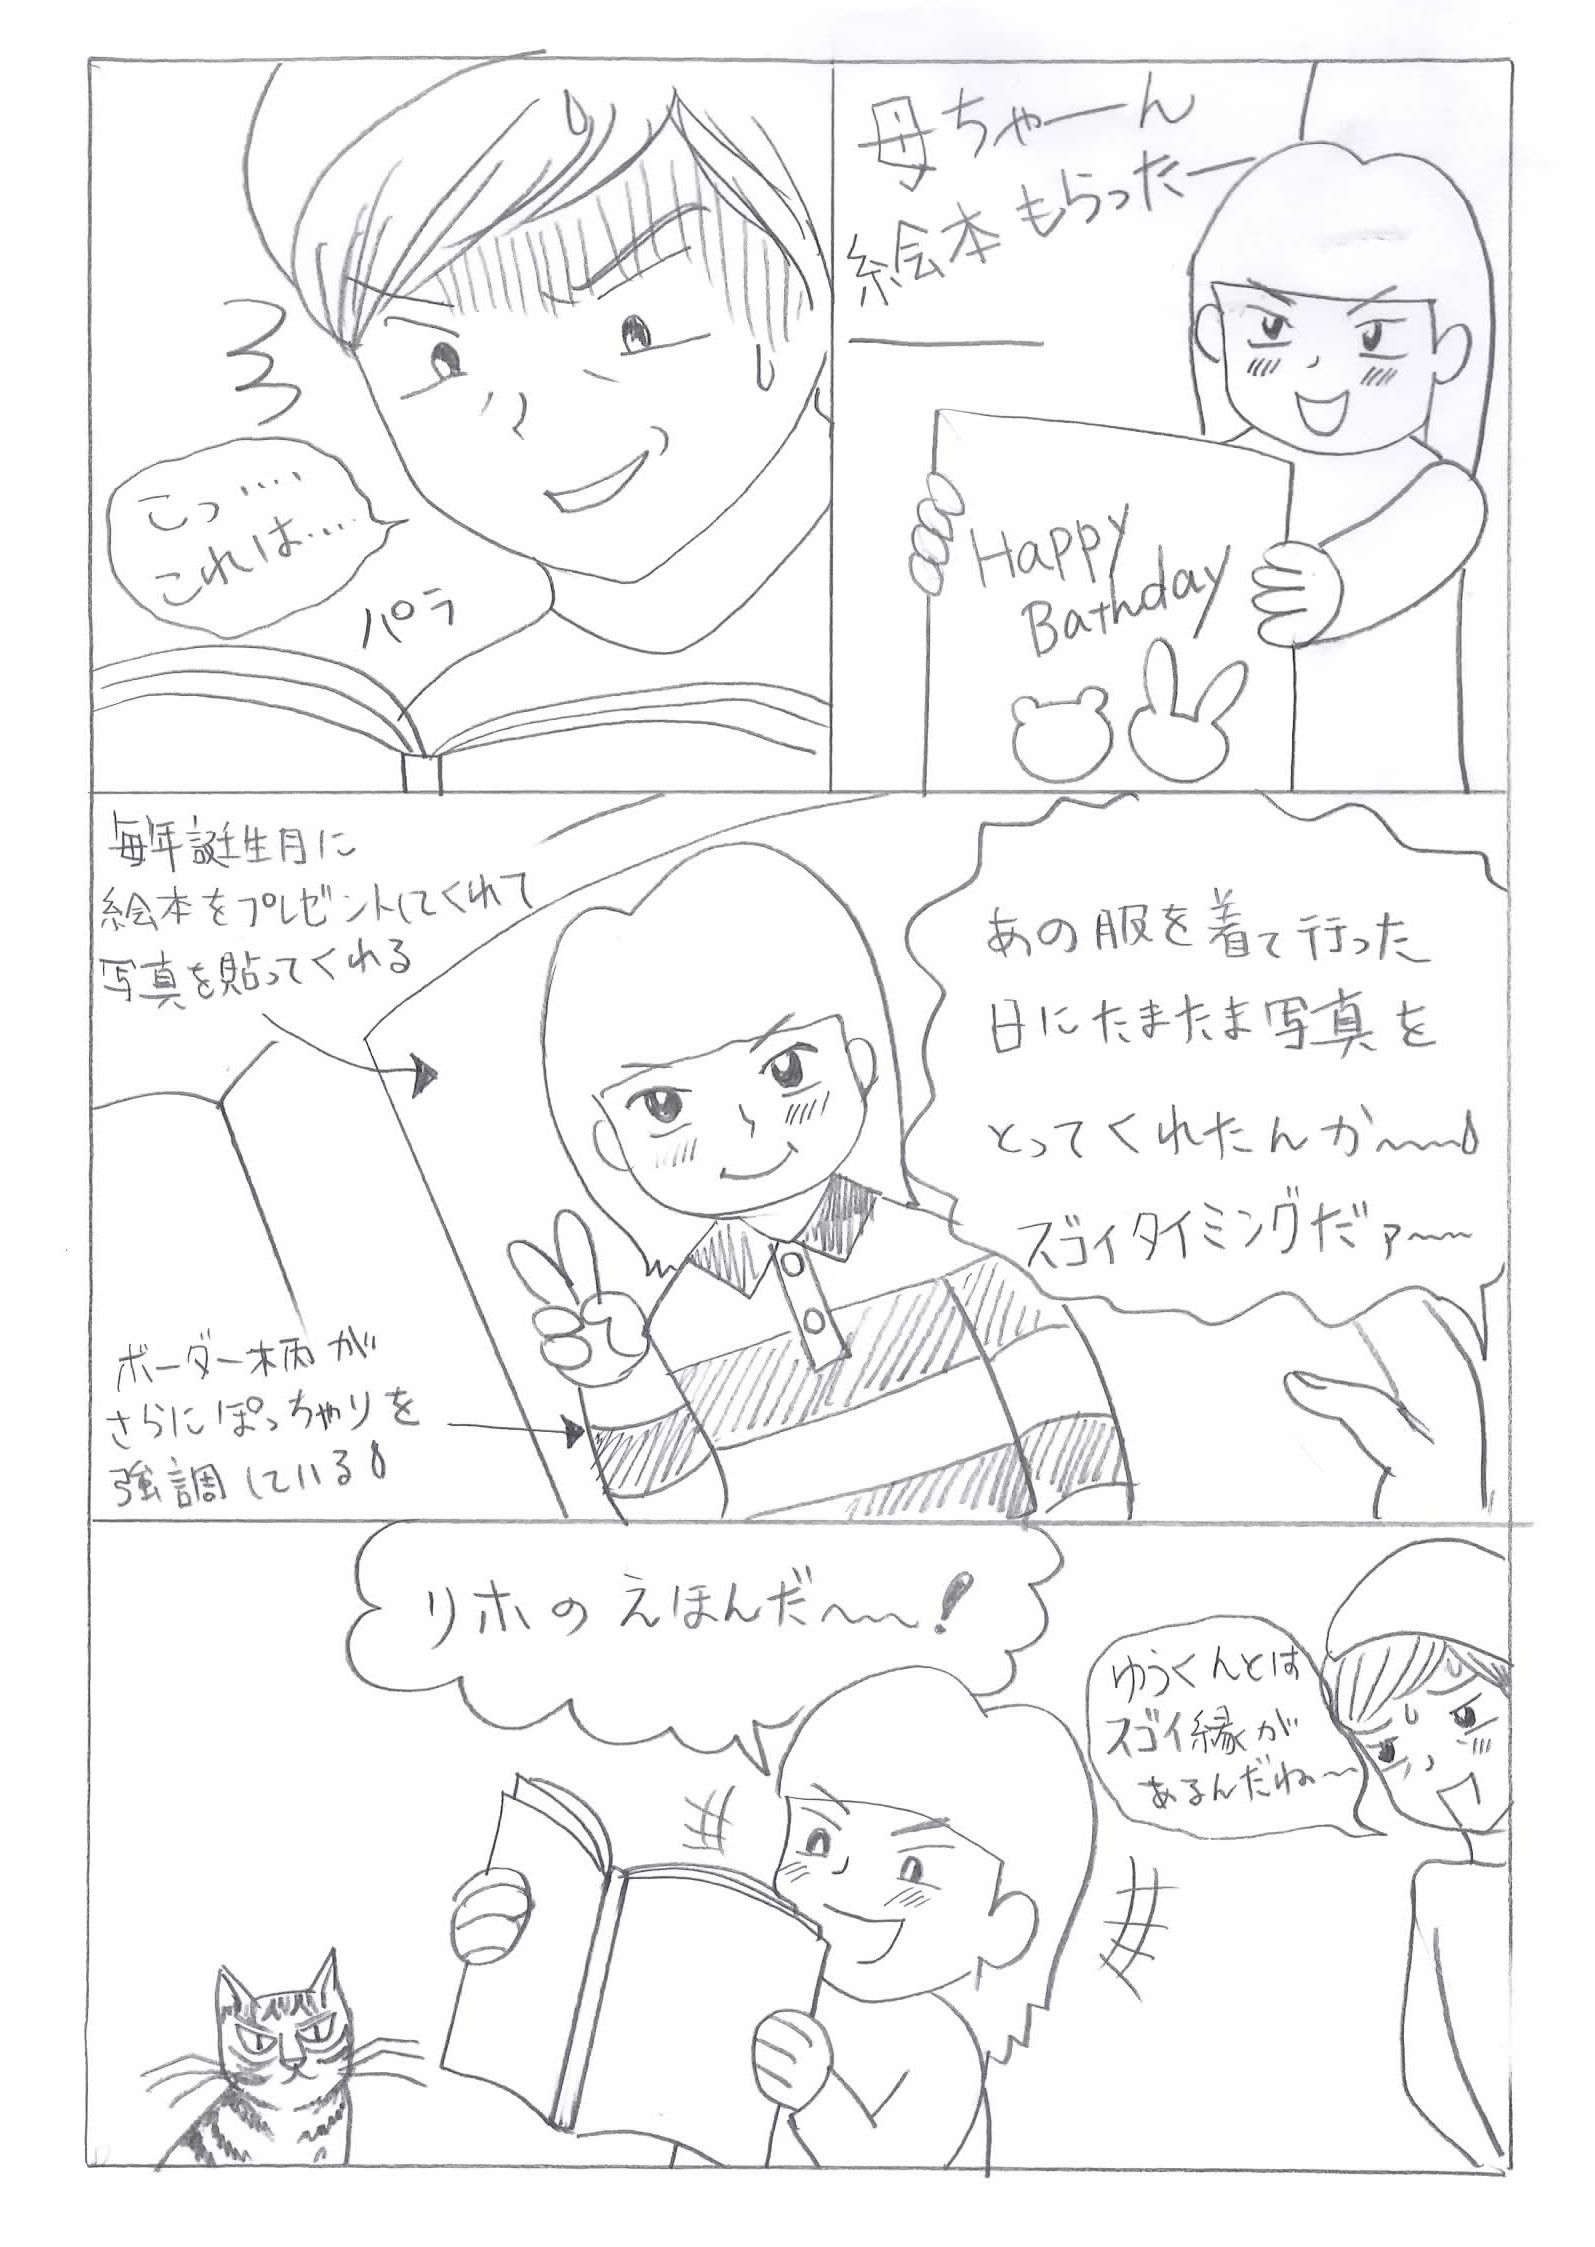 母ちゃーん
絵本もらったー
Happy
Bathday
こっ‥‥
これは‥‥
パラ
あの服を着て行った
日にたまたま写真を
とってくれたんか〜〜
スゴイタイミングだァ〜〜
毎年誕生月に
絵本をプレゼントしてくれて
写真を貼ってくれる
ボーダー柄が
さらにぽっちゃりを
強調している
ゆうくんとは
スゴイ縁が
あるんだね〜
リホのえほんだ〜〜!